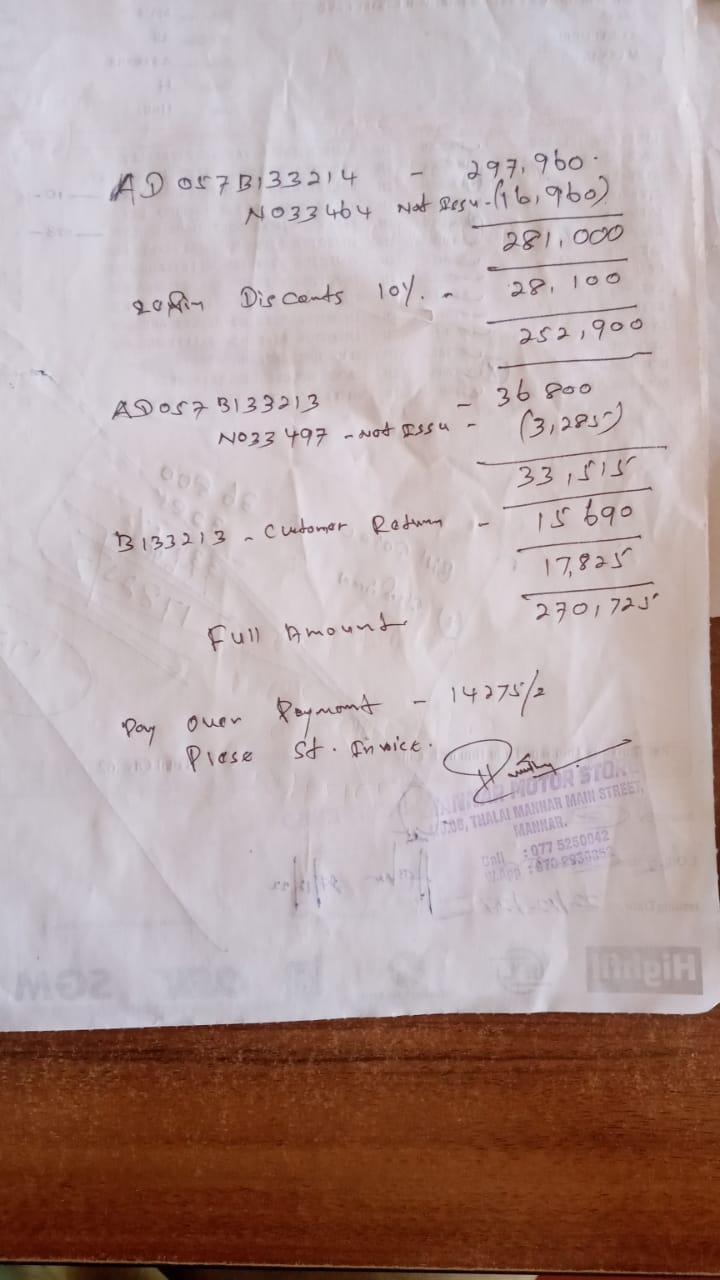 AD 057B133214 - 297,960.
N033464 Not Issu - (16,960)
281,000
Discounts 10%. - 28,100
252,900
AD057B133213 - 36 800
N033497 - Not Issu - (3,285)
33,515
B133213 - Customer Return - 15 690
17,825
Full Amount 270,725
Pay Over Payment - 14275/2
Plese St. Invoice.
MOTOR STOR
THALAI MANNAR MAIN STREET,
MANNAR.
Call : 077 5250042
Highfil
SGM